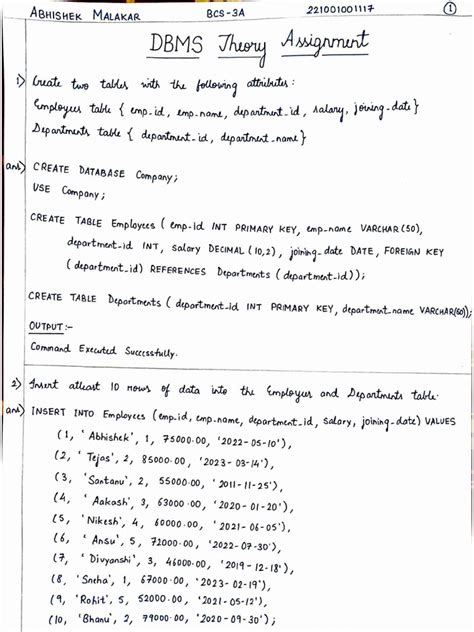 ABHISHEK MALAKAR BCS-3A 221001001117 1
DBMS Theory Assignment
1) Create two tables with the following attributes:
Employees table { emp_id, emp_name, department_id, salary, joining_date }
Departments table { department_id, department_name }
ans) CREATE DATABASE Company;
USE Company;
CREATE TABLE Employees ( emp_id INT PRIMARY KEY, emp_name VARCHAR(50),
department_id INT, salary DECIMAL (10,2), joining_date DATE, FOREIGN KEY
( department_id) REFERENCES Departments ( department_id));
CREATE TABLE Departments ( department_id INT PRIMARY KEY, department_name VARCHAR(50));
OUTPUT:-
Command Executed Successfully.
2) Insert atleast 10 rows of data into the Employees and Departments table.
ans) INSERT INTO Employees (emp_id, emp_name, department_id, salary, joining_date) VALUES
(1, 'Abhishek', 1, 75000.00, '2022-05-10'),
(2, 'Tejas', 2, 85000.00, '2023-03-14'),
(3, 'Santanu', 2, 55000.00, '2011-11-25'),
(4, 'Aakash', 3, 63000.00, '2020-01-20'),
(5, 'Nikesh', 4, 60000.00, '2021-06-05'),
(6, 'Ansu', 5, 72000.00, '2022-07-30'),
(7, 'Divyanshi', 3, 46000.00, '2019-12-18'),
(8, 'Sneha', 1, 67000.00, '2023-02-19'),
(9, 'Rohit', 5, 52000.00, '2021-05-12'),
(10, 'Bhanu', 2, 79000.00, '2020-09-30');